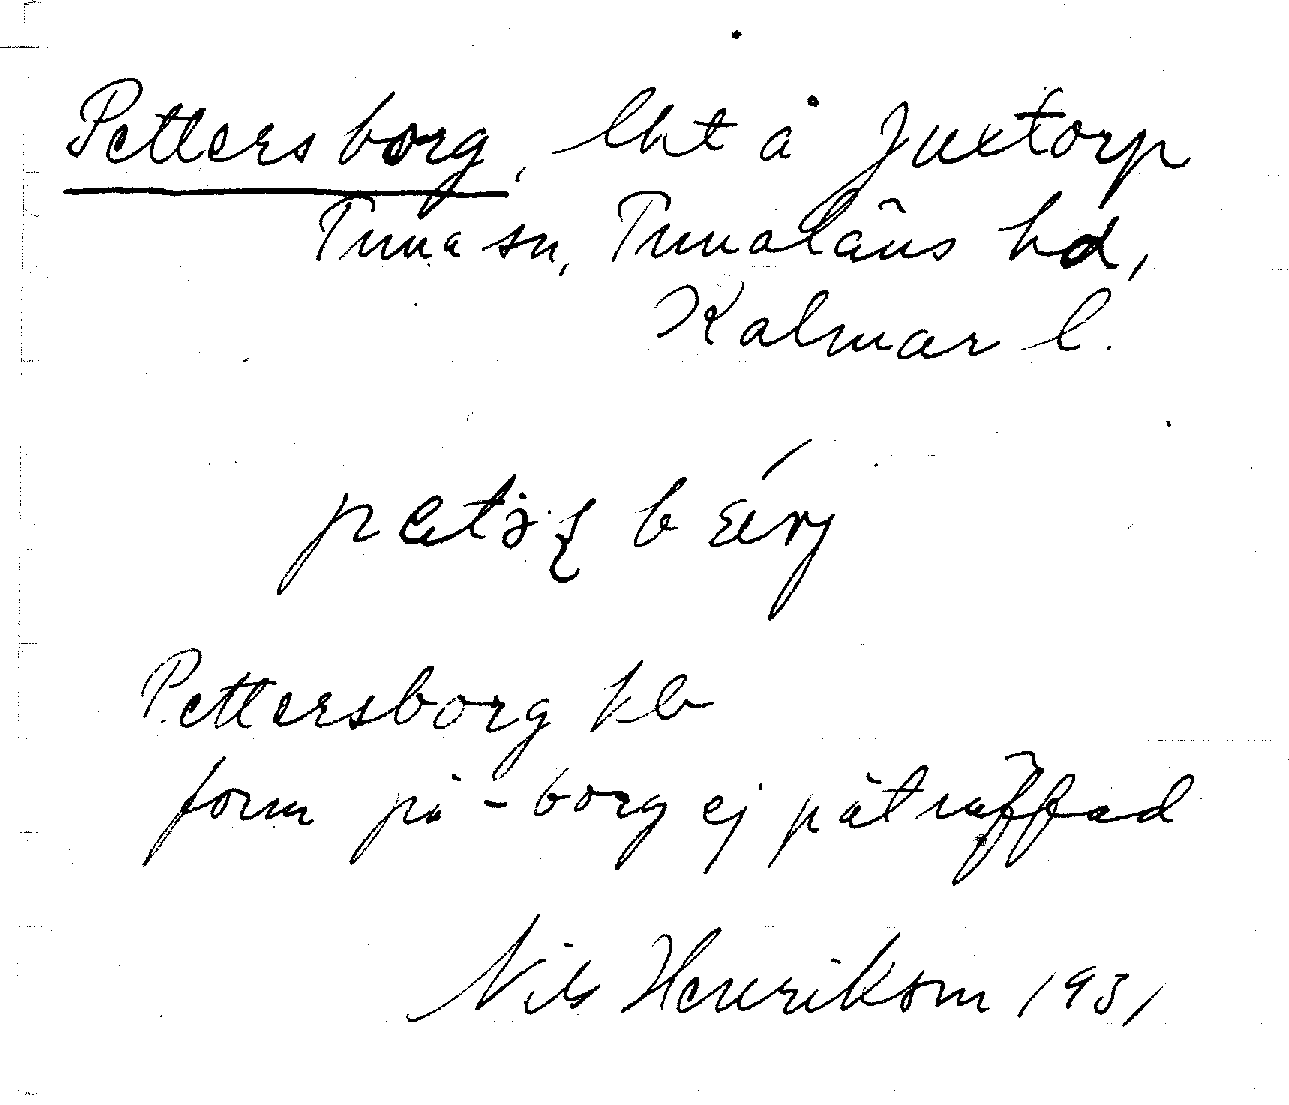 Pettersborg, lht å Juxtorp
Tuna sn, Tunaläns hd,
Kalmar l.
Pettersborg kb
form på -borg ej påträffad
Nils Henrikson 1931